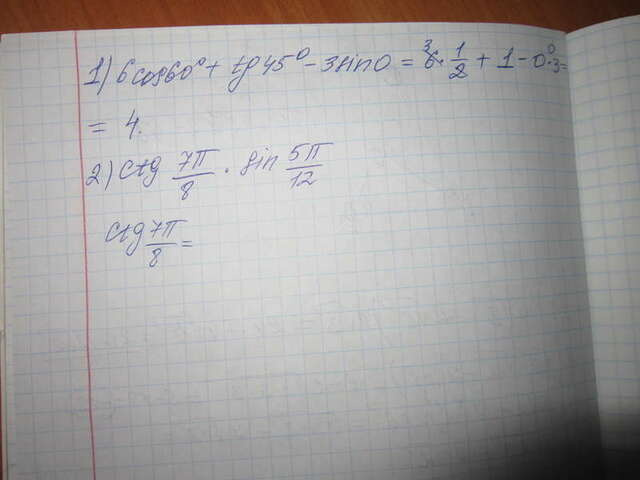 1) 6cos60° + tg45° - 3sin0 = 6 · 1/2 + 1 - 0 · 3 =
= 4.
2) ctg 7π/8 · sin 5π/12
ctg 7π/8 =